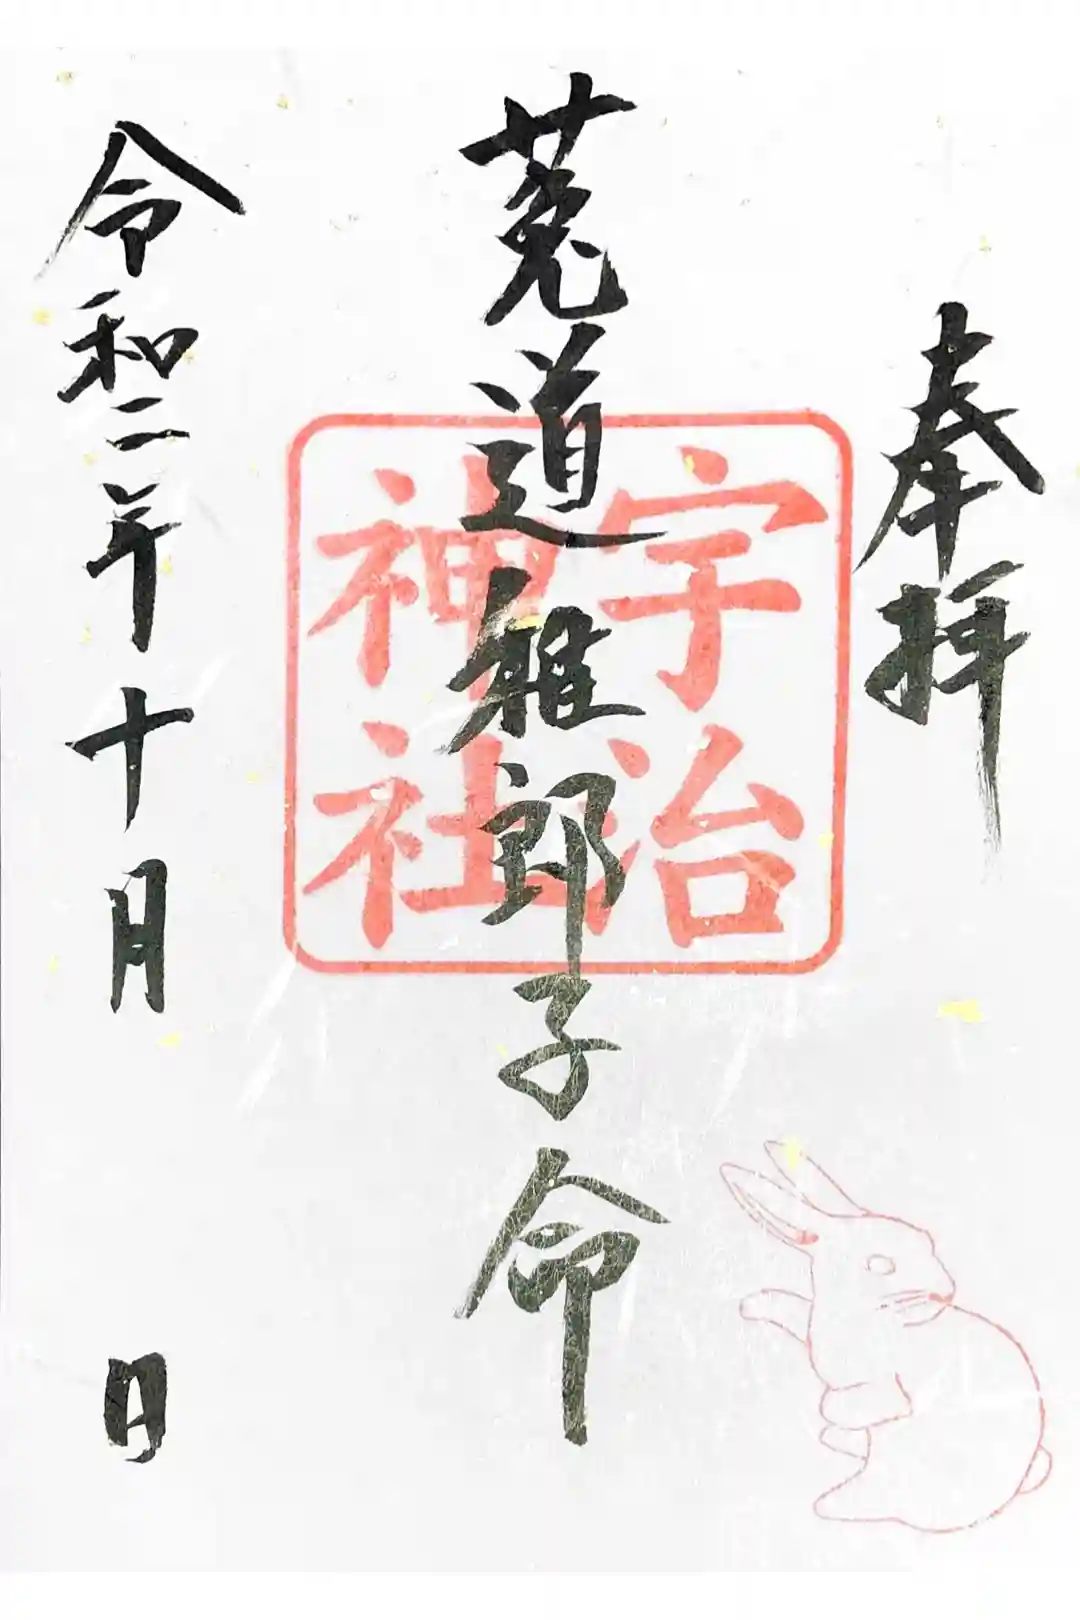 奉拝
宇治
神社
菟道雅郎子命
令和二年十月 日